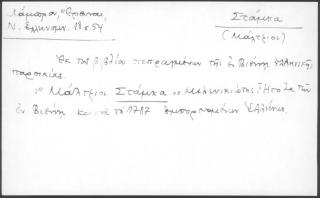 Λάμπρου, "Έρευναι,
Ν. Ελληνομν. 18 σ. 54
Στάμκα
(Μάλτζιος)
Εκ των βιβλίων πεπραγμένων της εν Βιέννη Ελληνικής
παροικίας.
"Μάλτζιος Στάμκα" Μελενικιώτης. Ήτο εκ των
εν Βιέννη κατά το 1787 εμπορευομένων Ελλήνων.